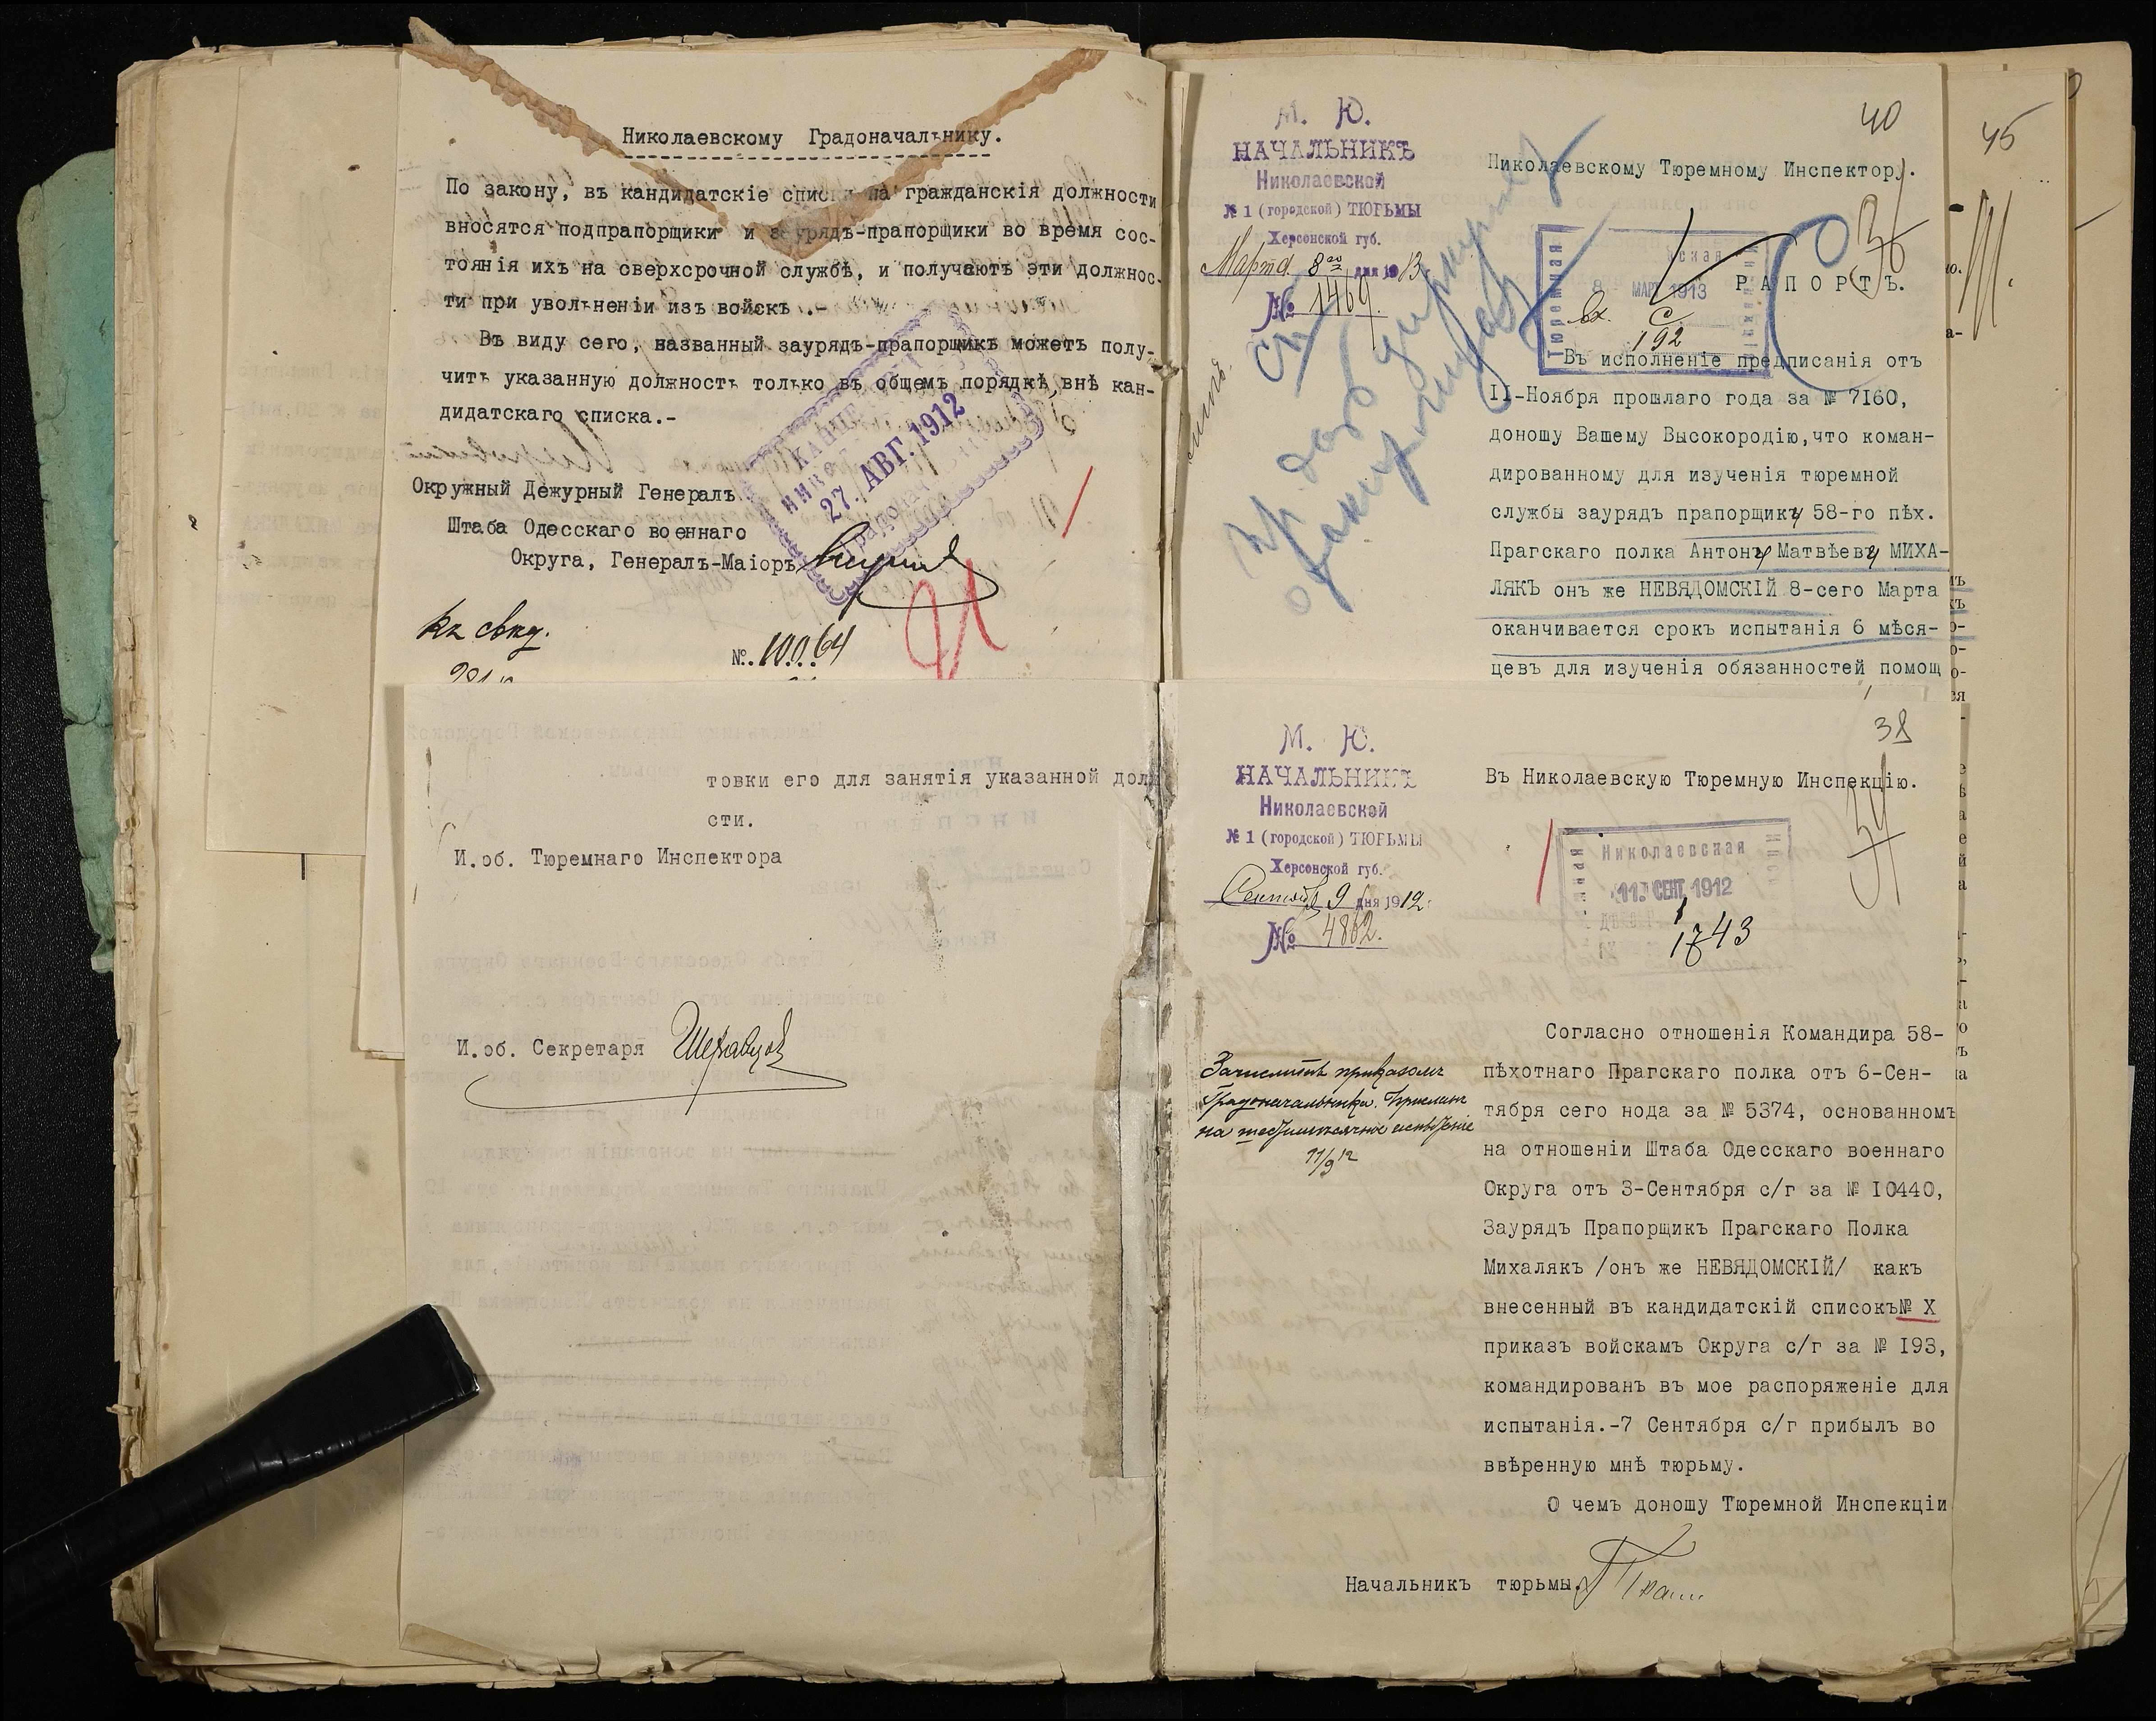 Николаевскому Градоначальнику.
По закону, въ кандидатскіе списки на гражданскія должности
вносятся подпрапорщики и заурядъ-прапорщики во время сос-
тоянія ихъ на сверхсрочной службѣ, и получаютъ эти должнос-
ти при увольненіи изъ войскъ .-
Въ виду сего, названный заурядъ-прапорщикъ можетъ полу-
чить указанную должность только въ общемъ порядкѣ внѣ кан-
дидатскаго списка.-
27. АВГ. 1912
Окружный Дежурный Генералъ
Штаба Одесскаго военнаго
Округа, Генералъ-Маіоръ
Къ свѣд.
№. 10064
товки его для занятія указанной дол
сти.
И.об. Тюремнаго Инспектора
И.об. Секретаря
40
М. Ю.
НАЧАЛЬНИКЪ
Николаевской
№ 1 (городской) ТЮРЬМЫ
Херсонской губ.
Марта 8го дня 1913
№ 1469.
Николаевскому Тюремному Инспектору.
36
8 МАР 1913
Вх. С
192
РАПОРТЪ.
Въ исполненіе предписанія отъ
II-Ноября прошлаго года за № 7I60,
доношу Вашему Высокородію,что коман-
дированному для изученія тюремной
службы заурядъ прапорщику 58-го пѣх.
Прагскаго полка Антону Матвѣеву МИХА-
ЛЯКЪ онъ же НЕВЯДОМСКІЙ 8-сего Марта
оканчивается срокъ испытанія 6 мѣся-
цевъ для изученія обязанностей помощ
45
38
М. Ю.
НАЧАЛЬНИКЪ
Николаевской
№ 1 (городской) ТЮРЬМЫ
Херсонской губ.
Сентября 9 дня 1912
№ 4862.
Въ Николаевскую Тюремную Инспекцію.
34
Николаевская
11 СЕНТ 1912
1743
Зачислить приказомъ
Градоначальника.
на шестимѣсячное испытаніе
11/9 12
Согласно отношенія Командира 58-
пѣхотнаго Прагскаго полка отъ 6-Сен-
тября сего нода за № 5374, основанномъ
на отношеніи Штаба Одесскаго военнаго
Округа отъ 3-Сентября с/г за № I0440,
Заурядъ Прапорщикъ Прагскаго Полка
Михалякъ /онъ же НЕВЯДОМСКІЙ/ какъ
внесенный въ кандидатскій списокъ№ X
приказъ войскамъ Округа с/г за № I93,
командированъ въ мое распоряженіе для
испытанія.-7 Сентября с/г прибылъ во
ввѣренную мнѣ тюрьму.
О чемъ доношу Тюремной Инспекціи
Начальникъ тюрьмы